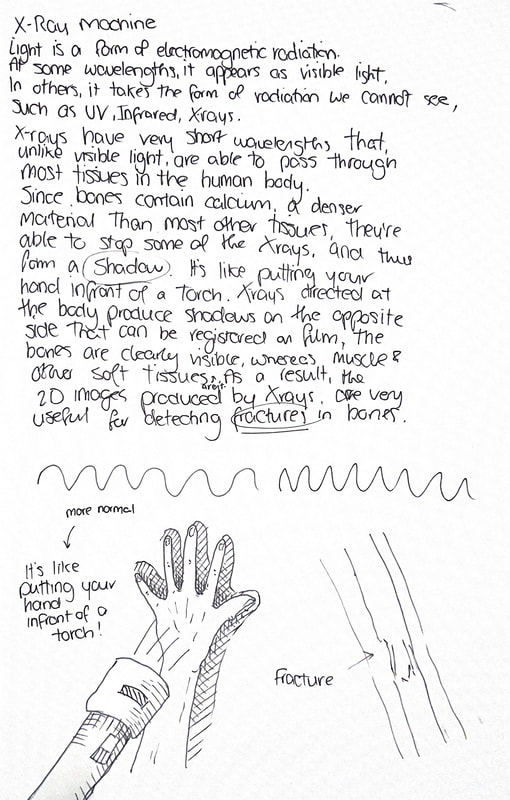 X-Ray Machine
Light is a form of electromagnetic radiation.
At some wavelengths, it appears as visible light,
In others, it takes the form of radiation we cannot see,
such as UV, Infrared, Xrays.
X-rays have very short wavelengths that,
unlike visible light, are able to pass through
most tissues in the human body.
Since bones contain calcium, a denser
material than most other tissues, they're
able to stop some of the Xrays, and thus
form a Shadow. It's like putting your
hand infront of a torch. Xrays directed at
the body produce shadows on the opposite
side that can be registered on film, the
bones are clearly visible, whereas muscle &
other soft tissues aren't. As a result, the
2D images produced by Xrays, are very
useful for detecting fractures in bones.
more normal
It's like
putting your
hand
infront of a
torch!
fracture